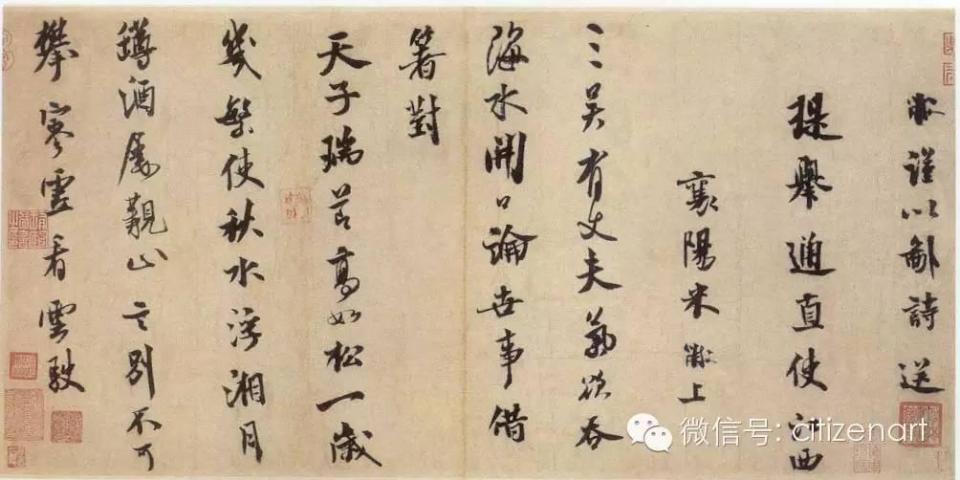 黻謹以鄙詩送
提舉通直使江西
襄陽米黻上
三吳有丈夫氣欲吞
海水開口論世事借
箸對
天子瑞節高如松一歲
幾繁使秋水浮湘月
鐏酒屢觀山言別不可
攀寒雲看雲駛
微信号: citizenart